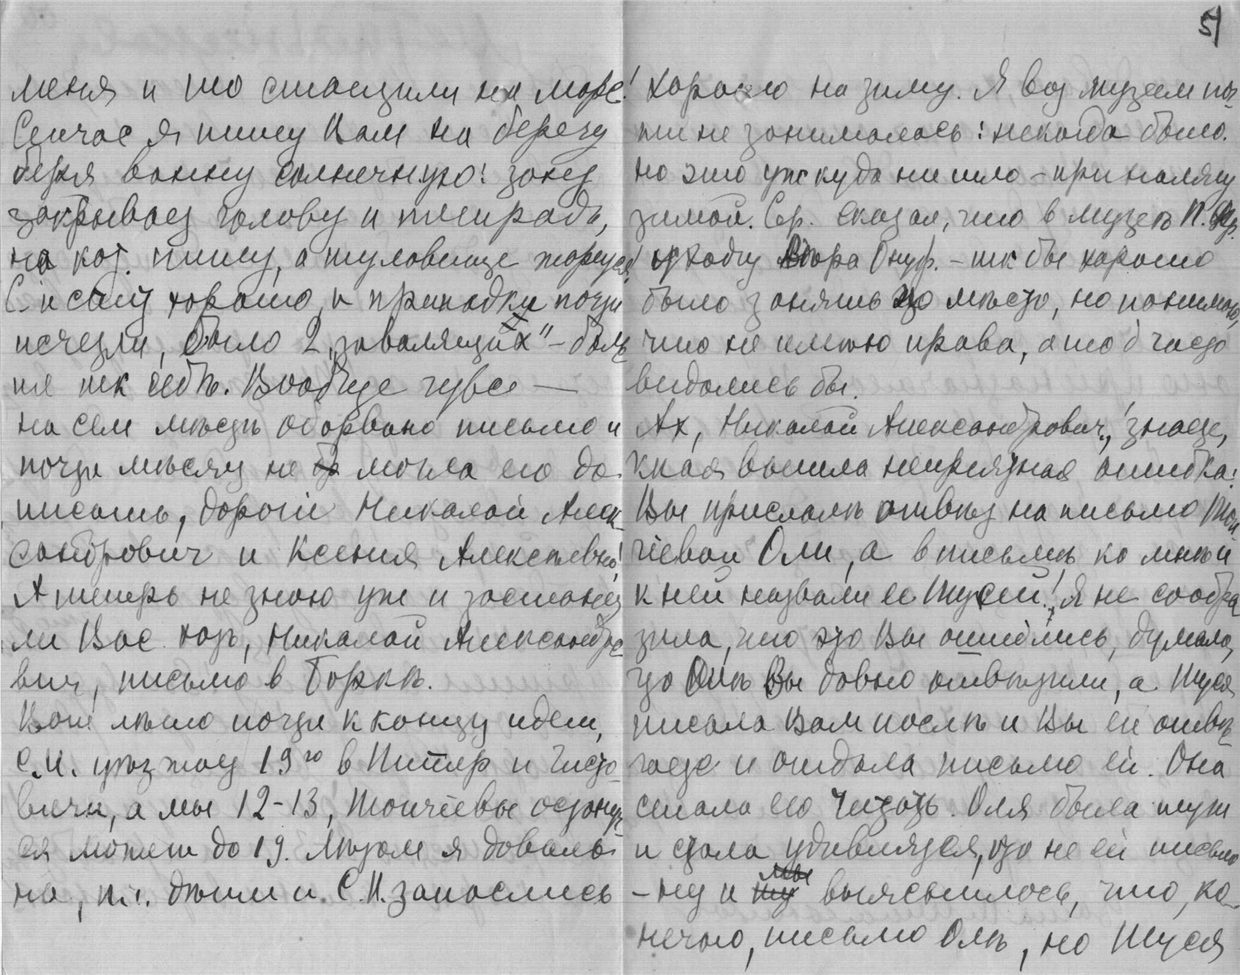 51
меня и то стащили на море!
Сейчас я пишу Вам на берегу
беря ванну солнечную: зонт
закрывает голову и тетрадь,
на кот. пишу, а туловище жарится
С. и спит хорошо, и припадки почти
исчезли, было 2 „завалящих" – был
ня так себѣ. Вообще чувс —
на сем мѣстѣ оборвано письмо и
почти мѣсяц не могла его до
писать, дорогой Николай Алек
сандрович и Ксения Алексѣевна!
А теперь не знаю уж и застанет
ли Вас хоть, Николай Александро
вич, письмо в Боркѣ.
Вот лѣто почти к концу идет,
С.И. уѣзжает 19го в Питер и Чисто
вичи, а мы 12-13, Тончіевы останут
ся может до 19. Лѣтом я доволь
на, п.ч. дѣти и С.И. запаслись
хорошо на зиму. Я воз музеем по
ти не занималась: некогда было.
но это уж куда ни шло – приналягу
зимой. Сер. сказал, что в музеѣ П. Вр.
уходит Ѳнуф. – так бы хорошо
было занять то мѣсто, но понимаю,
что не имѣю права, а то б часто
видались бы.
Ах, Николай Александрович, знаете,
какая вышла неприятная ошибка:
Вы прислали отвѣт на письмо Тон
чіевой Оли, а в письмѣ ко мнѣ и
к ней назвали ее Тусей! Я не сообра
зила, что это Вы ошиблись, думала,
что Олѣ Вы давно отвѣтили, а Туся
писала Вам послѣ и Вы ей отвѣ
чаете и отдала письмо ей. Она
стала его читать. Оля была тут
и стала удивляться, что не ей письмо
– ну и мы выяснилось, что, ко
нечно, письмо Олѣ, но Туся